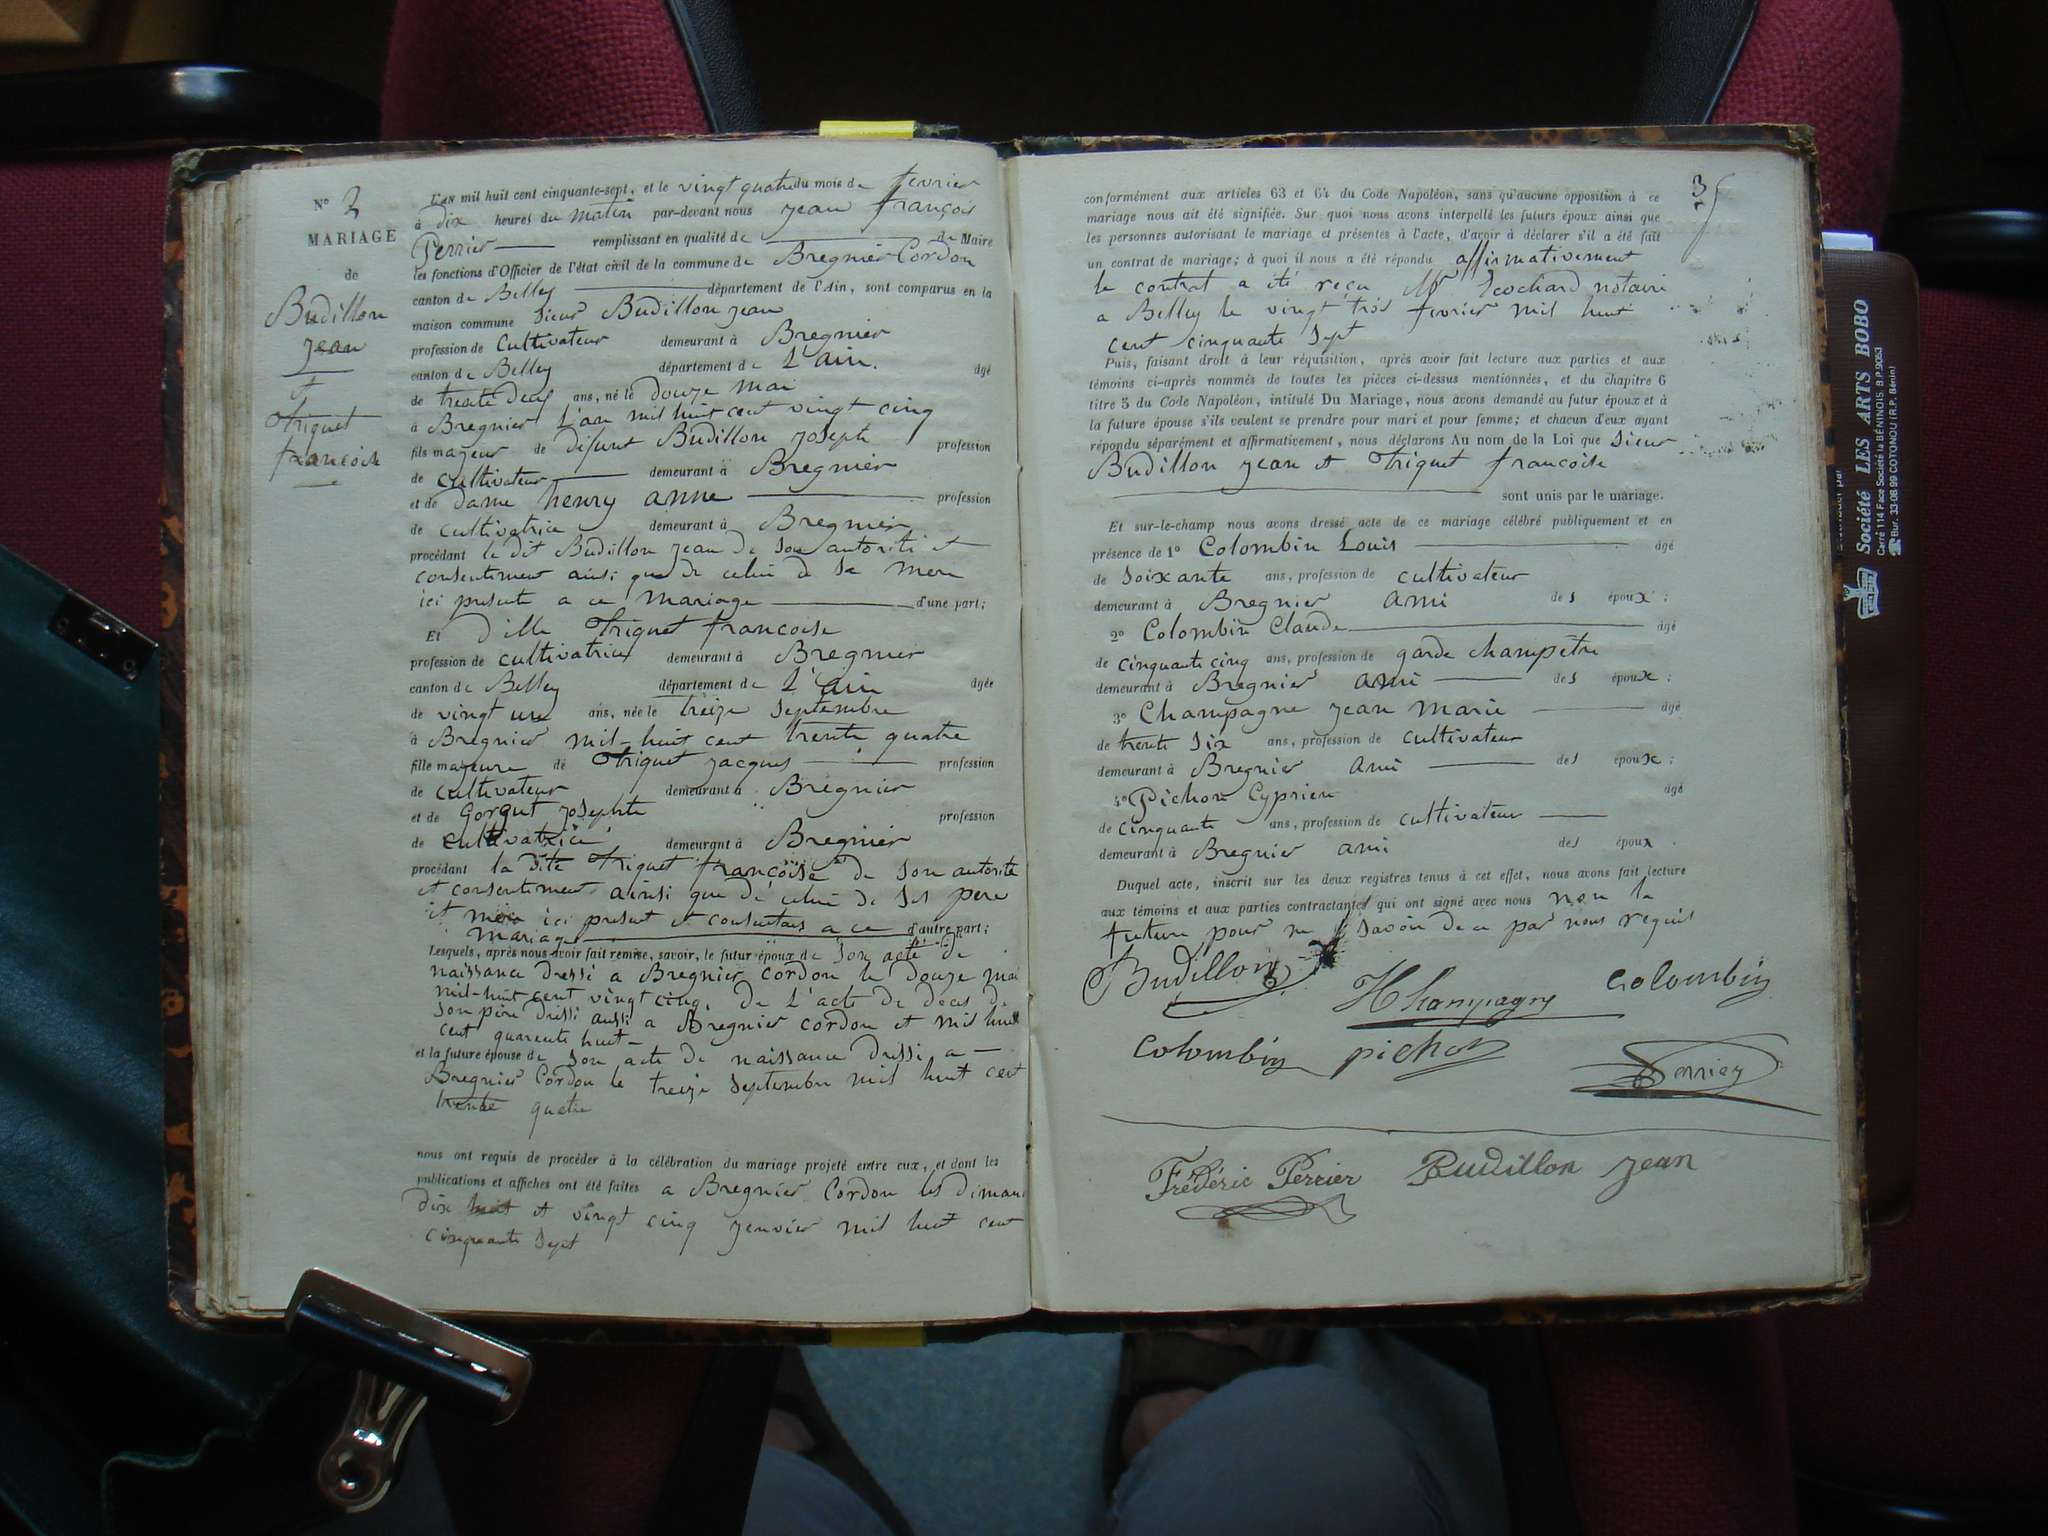 N° 3
MARIAGE
de
Budillon
Jean
et
Triquet
francoise
L'an mil huit cent cinquante-sept, et le vingt quatre du mois de fevrier
à dix heures du matin par-devant nous jean françois
Perrier remplissant en qualité de de Maire
les fonctions d'Officier de l'état civil de la commune de Bregnier Cordon
canton de Belley département de l'Ain, sont comparus en la
maison commune sieur Budillon jean
profession de cultivateur demeurant à Bregnier
canton de Belley département de L'ain. âgé
de trente deux ans, né le douze mai
à Bregnier L'an mil huit cent vingt cinq
fils majeur de défunt Budillon joseph profession
de cultivateur demeurant à Bregnier
et de dame henry anne profession
de cultivatrice demeurant à Bregnier
procédant le dit Budillon jean de son autorité et
consentement ainsi que de celui de sa mere
ici presente a ce mariage d'une part;
Et dlle Triquet francoise
profession de cultivatrice demeurant à Bregnier
canton de Belley département de L'ain âgée
de vingt une ans, née le treize septembre
à Bregnier mil-huit cent trente quatre
fille majeure de Triquet jacques profession
de cultivateur demeurant à Bregnier
et de Gorgut josephte profession
de cultivatrice demeurant à Bregnier
procédant la dite Triquet françoise de son autorité
et consentement ainsi que de celui de ses pere
et mere ici present et consentans a ce
mariage d'autre part;
Lesquels, après nous avoir fait remise, savoir, le futur époux de son acte de
naissance dressé a Bregnier cordon le douze mai
mil-huit cent vingt cinq, de l'acte de deces de
son père dressé aussi a Bregnier cordon et mil huit
cent quarente huit
et la future épouse de son acte de naissance dressé a
Bregnier Cordon le treize septembre mil huit cent
trente quatre
nous ont requis de procéder à la célébration du mariage projeté entre eux, et dont les
publications et affiches ont été faites a Bregnier Cordon les diman
dix huit et vingt cinq jenvier mil huit cent
cinquante sept
3
conformément aux articles 63 et 64 du Code Napoléon, sans qu'aucune opposition à ce
mariage nous ait été signifiée. Sur quoi nous avons interpellé les futurs époux ainsi que
les personnes autorisant le mariage et présentes à l'acte, d'avoir à déclarer s'il a été fait
un contrat de mariage; à quoi il nous a été répondu affirmativement
le contrat a été reçu Mr notaire
a Belley le vingt trois fevrier mil huit
cent cinquante sept
Puis, faisant droit à leur réquisition, après avoir fait lecture aux parties et aux
témoins ci-après nommés de toutes les pièces ci-dessus mentionnées, et du chapitre 6
titre 5 du Code Napoléon, intitulé Du Mariage, nous avons demandé au futur époux et à
la future épouse s'ils veulent se prendre pour mari et pour femme; et chacun d'eux ayant
répondu séparément et affirmativement, nous déclarons Au nom de la Loi que sieur
Budillon jean et Triquet francoise
sont unis par le mariage.
Et sur-le-champ nous avons dressé acte de ce mariage célébré publiquement et en
présence de 1° Colombin Louis âgé
de soixante ans, profession de cultivateur
demeurant à Bregnier ami des époux;
2° Colombin Claude âgé
de cinquante cinq ans, profession de garde champêtre
demeurant à Bregnier ami des époux;
3° Champagne jean marie âgé
de trente six ans, profession de cultivateur
demeurant à Bregnier ami des époux;
4° Pichon Cyprien âgé
de cinquante ans, profession de cultivateur
demeurant à Bregnier ami des époux
Duquel acte, inscrit sur les deux registres tenus à cet effet, nous avons fait lecture
aux témoins et aux parties contractantes qui ont signé avec nous non la
future pour ne savoir de ce par nous requis
Budillon
Champagne
colombin
colombin
pichon
Perrier
Fréderic Perrier
Budillon jean
Société LES ARTS BOBO
Carré 114 Face Société la BÉNINOIS. B.P.9053
Bur. 33-08 99 COTONOU (R.P. Bénin)